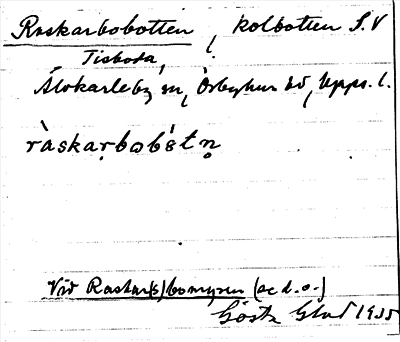 Raskarbobotten, kolbotten S.V
Tisboda,
Älvkarleby sn, Örbyhus hd, Upps. l.
ràskarbobótn
Vid Raskar(s)bomyren (se d.o.)
Gösta 1935